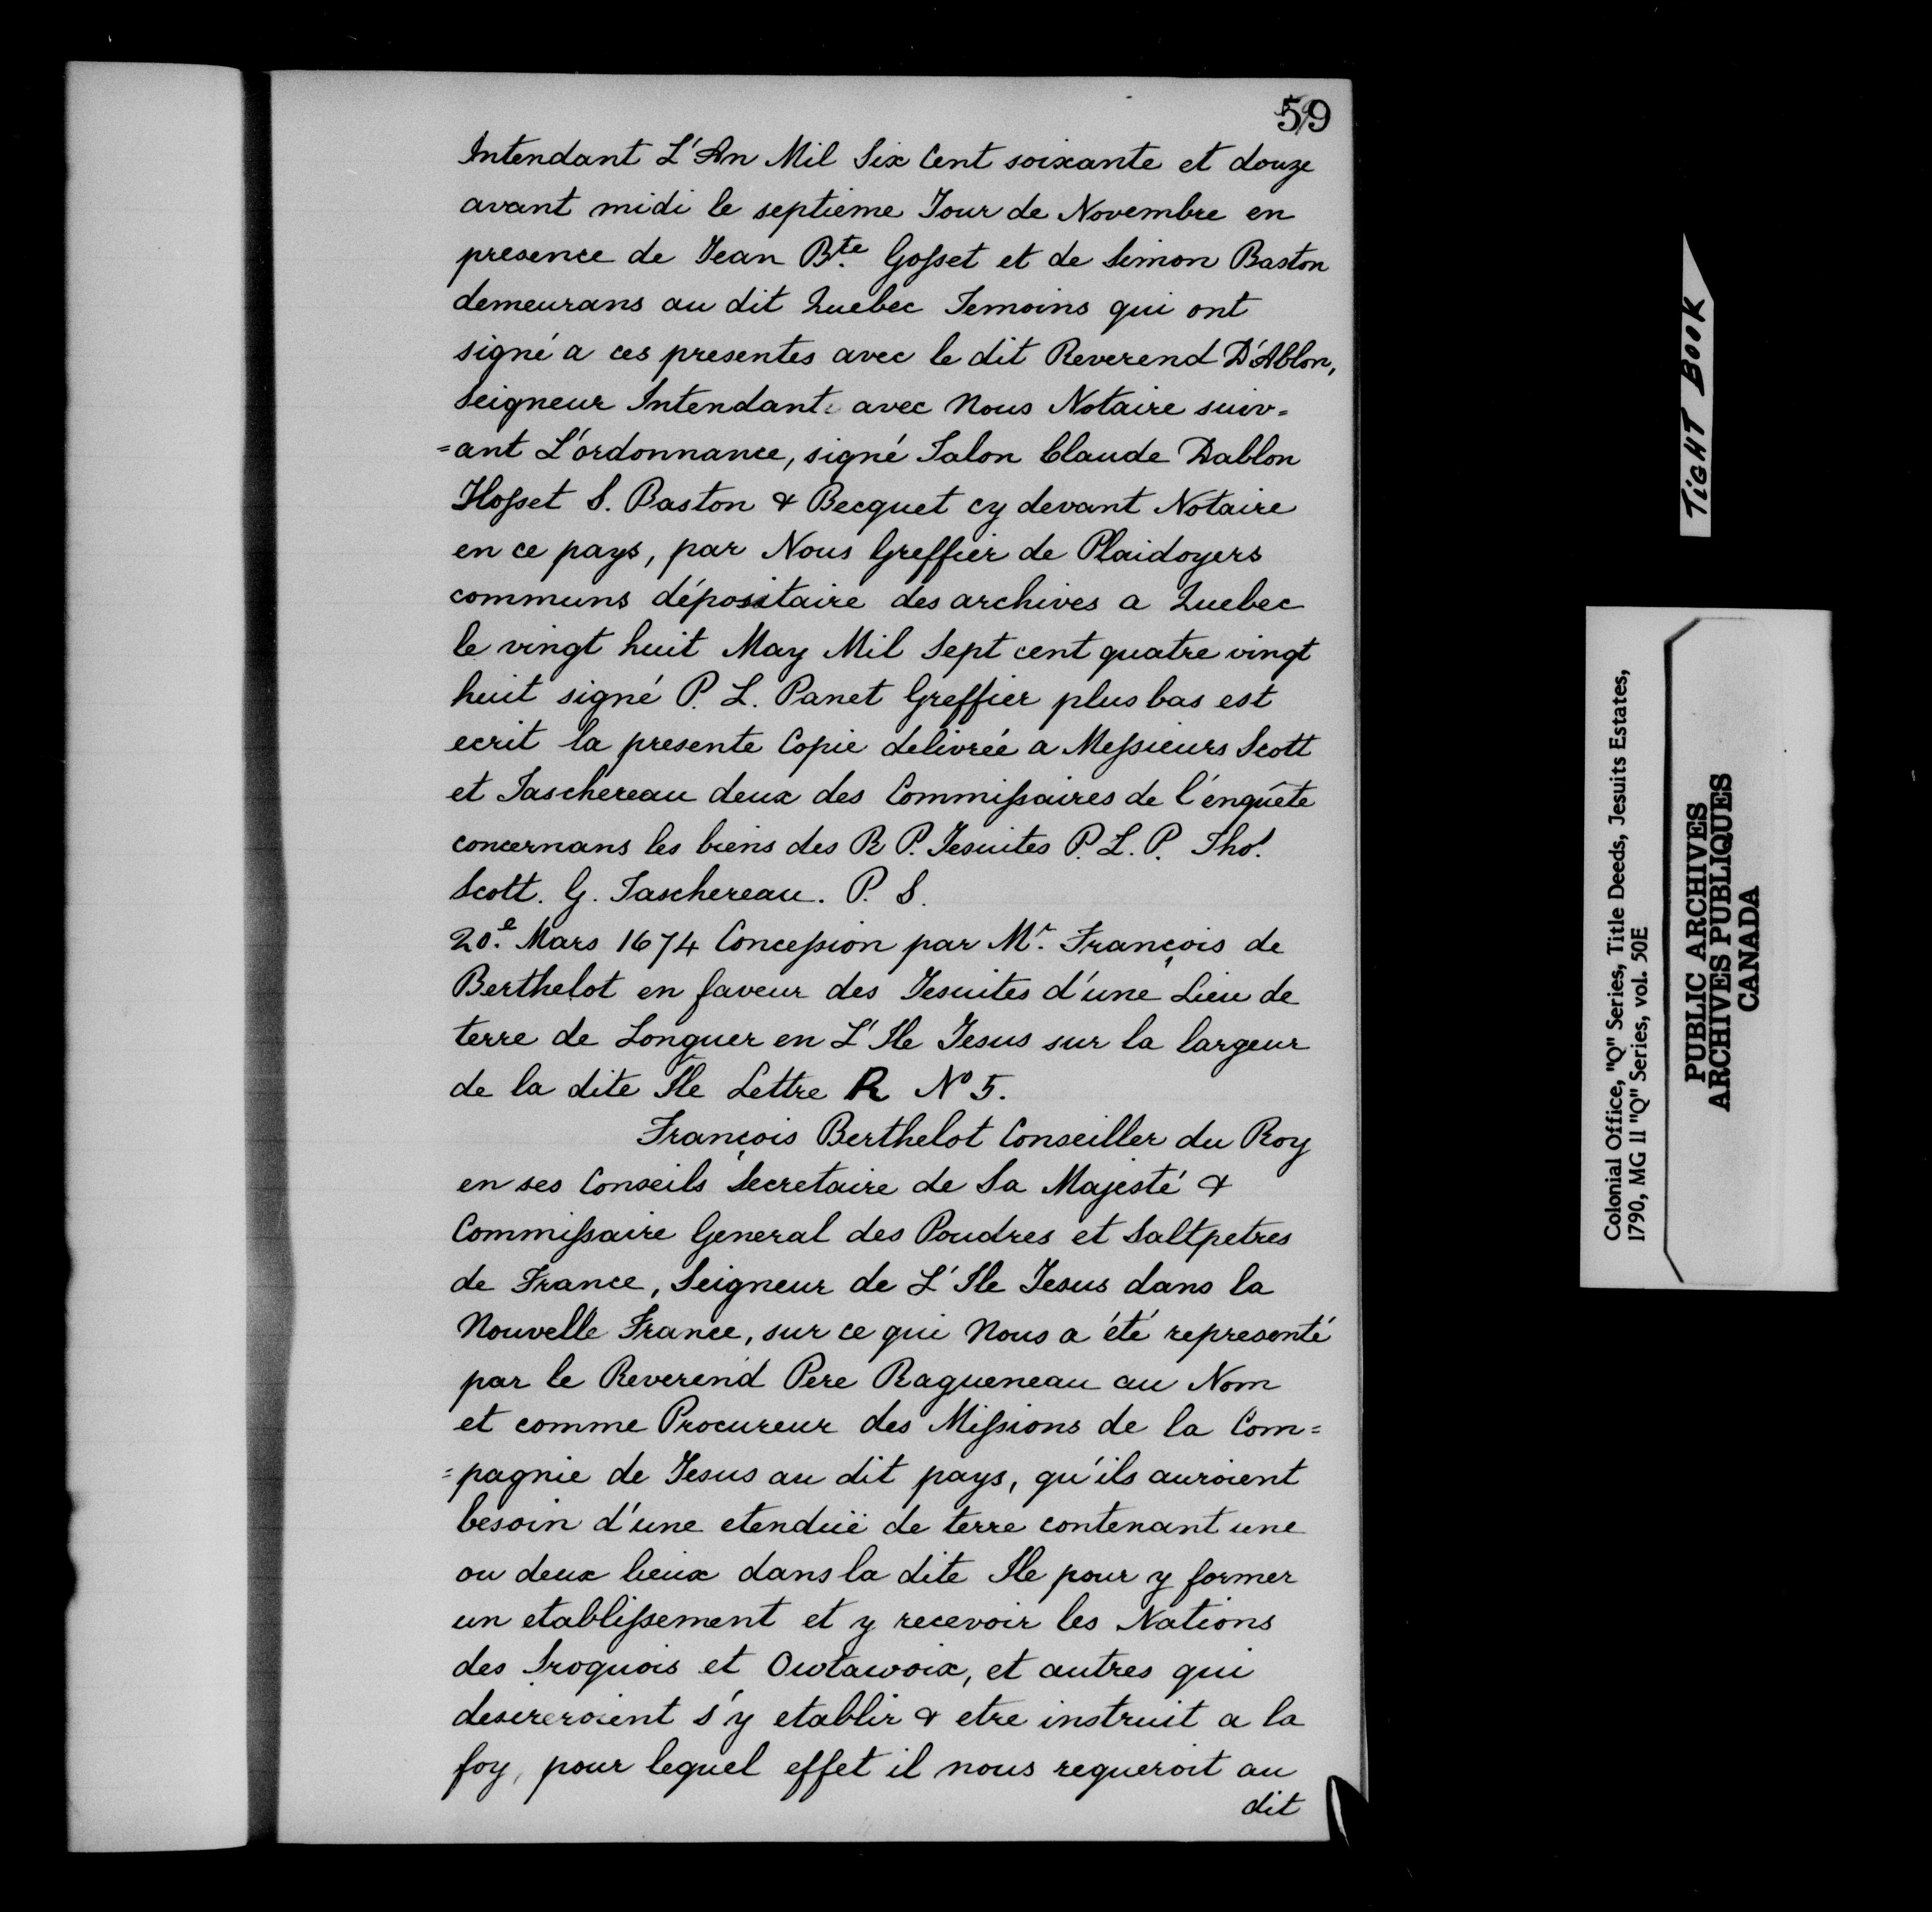 59
Intendant L'An Mil Six Cent soixante et douze
avant midi le septieme Jour de Novembre en
presence de Jean Bte. Gosset et de Simon Baston
demeurans au dit Quebec Temoins qui ont
signé a ces presentes avec le dit Reverend D'Ablon,
Seigneur Intendant avec Nous Notaire suiv=
=ant L'ordonnance, signé Talon Claude Dablon
Hosset S. Baston & Becquet cy devant Notaire
en ce pays, par Nous Greffier de Plaidoyers
communs dépositaire des archives a Quebec
le vingt huit May Mil Sept cent quatre vingt
huit signé P. L. Panet Greffier plus bas est
ecrit la presente Copie delivrée a Messieurs Scott
et Taschereau deux des Commissaires de l'enquête
concernans les biens des R P. Jesuites P. L. P. Thos.
Scott. G. Taschereau. P. S.
20.e Mars 1674 Concession par Mr. François de
Berthelot en faveur des Jesuites d'une Lieu de
terre de Longuer en L'Ile Jesus sur la largeur
de la dite Ile Lettre R No 5.
François Berthelot Conseiller du Roy
en ses Conseils Secretaire de Sa Majesté &
Commissaire General des Poudres et Saltpetres
de France, Seigneur de L'Ile Jesus dans la
Nouvelle France, sur ce qui Nous a été representé
par le Reverend Pere Ragueneau au Nom
et comme Procureur des Missions de la Com=
=pagnie de Jesus au dit pays, qu'ils auroient
besoin d'une etenduë de terre contenant une
ou deux lieux dans la dite Ile pour y former
un etablissement et y recevoir les Nations
des Iroquois et Owtawoix, et autres qui
desireroient s'y etablir & etre instruit a la
foy, pour lequel effet il nous requeroit au
dit
TIGHT BOOK
Colonial Office, "Q" Series, Title Deeds, Jesuits Estates,
1790, MG 11 "Q" Series, vol. 50E
PUBLIC ARCHIVES
ARCHIVES PUBLIQUES
CANADA